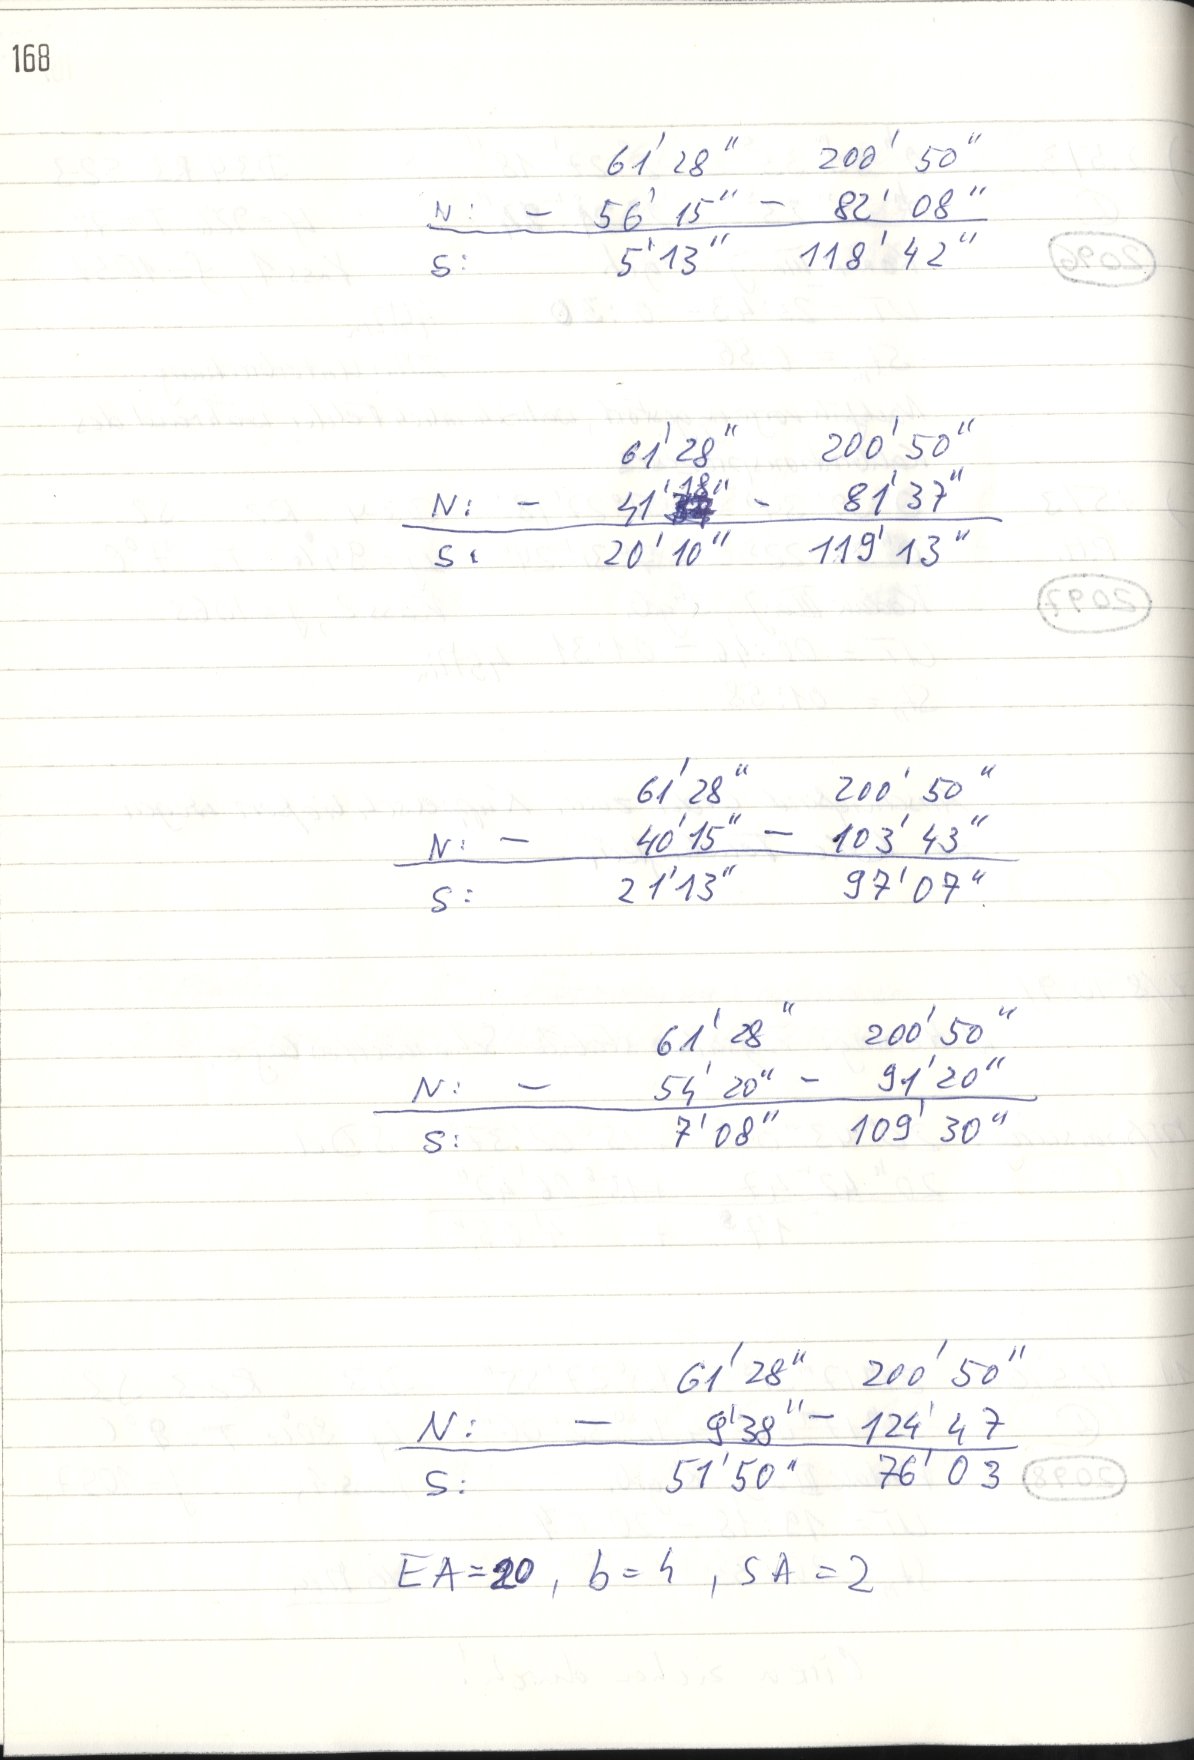 168
61' 28" 200' 50"
N: - 56' 15" - 82' 08"
S: 5' 13" 118' 42"
61' 28" 200' 50"
N: - 41' 18" - 81' 37"
S: 20' 10" 119' 13"
61' 28" 200' 50"
N: - 40' 15" - 103' 43"
S: 21' 13" 97' 07"
61' 28" 200' 50"
N: - 54' 20" - 91' 20"
S: 7' 08" 109' 30"
61' 28" 200' 50"
N: - 9' 38" - 124' 47
S: 51' 50" 76' 03
EA = 20, b = 4, SA = 2